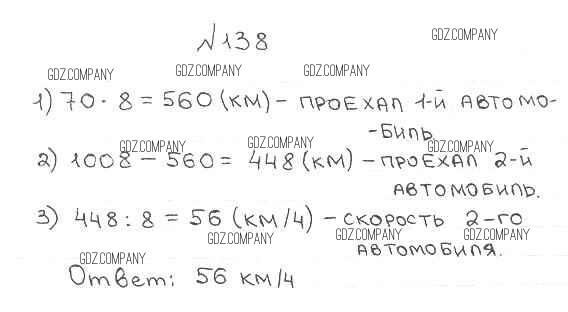 №138
GDZ.COMPANY
GDZ.COMPANY GDZ.COMPANY GDZ.COMPANY
1) 70 · 8 = 560 (км) – ПРОЕХАЛ 1-й АВТОМО-
-БИЛЬ
GDZ.COMPANY GDZ.COMPANY GDZ.COMPANY
2) 1008 – 560 = 448 (км) – ПРОЕХАЛ 2-й
АВТОМОБИЛЬ.
3) 448 : 8 = 56 (км/ч) – СКОРОСТЬ 2-го
GDZ.COMPANY GDZ.COMPANY GDZ.COMPANY
АВТОМОБИЛЯ.
GDZ.COMPANY
Ответ: 56 км/ч